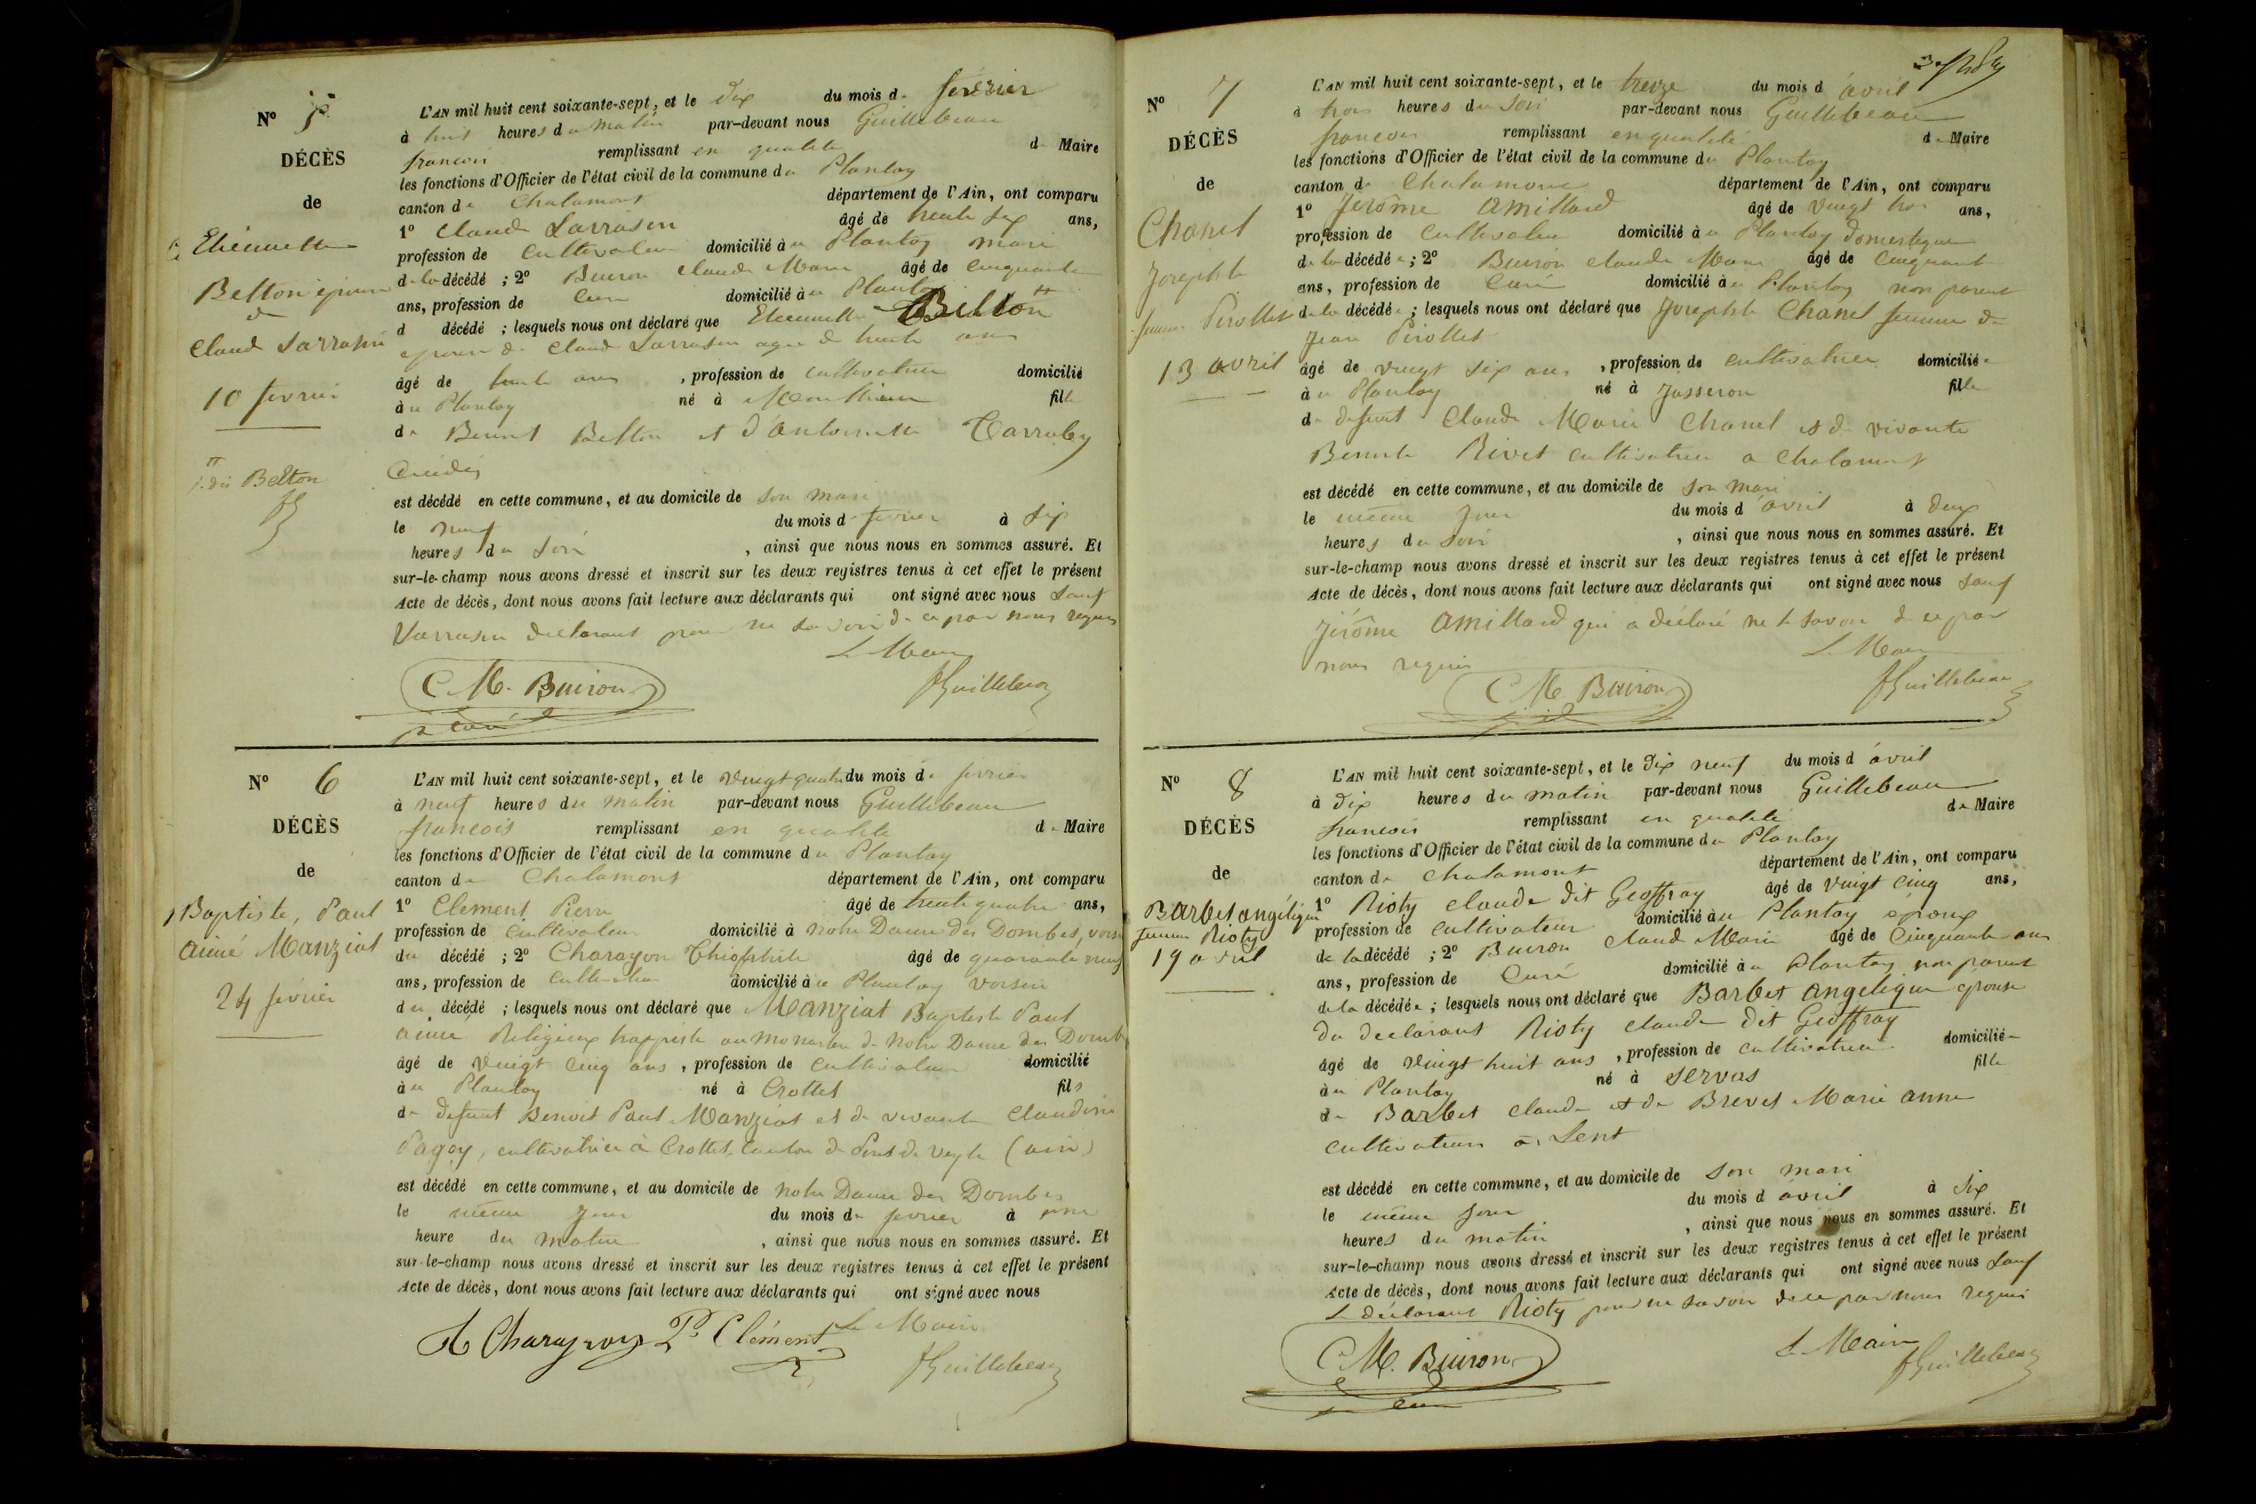 Nº 5
DÉCÈS
de
Etiennette
Belton épouse
de
Claude Sarrasin
10 fevrier
Belton
L'AN mil huit cent soixante-sept, et le dix du mois de février
à huit heures du matin par-devant nous Guillebeau
francois remplissant en qualité de Maire
les fonctions d'Officier de l'état civil de la commune du Plantay
canton de Chalamont département de l'Ain, ont comparu
1º Claude Sarrasin âgé de trente six ans,
profession de Cultivateur domicilié à u Plantay mari
de la décédé ; 2º Buiron Claude Marie âgé de cinquante
ans, profession de Curé domicilié à u Plantay
d décédé ; lesquels nous ont déclaré que Etiennette Belton
epouse de Claude Sarrasin agee de trente ans
âgé de trente ans , profession de cultivatrice domicilié
à u Plantay né à fille
de Benoit Belton et d'Antoinette
décédés
est décédé en cette commune, et au domicile de son mari
le neuf du mois de fevrier à six
heures du soir , ainsi que nous nous en sommes assuré. Et
sur-le-champ nous avons dressé et inscrit sur les deux registres tenus à cet effet le présent
Acte de décès, dont nous avons fait lecture aux déclarants qui ont signé avec nous sauf
Sarrasin declarant pour ne savoir de ce par nous requis
Le Maire
C. M. Buiron
curé
fGuillebeau
Nº 6
DÉCÈS
de
Baptiste, Paul
aimé Manziat
24 février
L'AN mil huit cent soixante-sept, et le vingt quatre du mois de fevrier
à neuf heures du matin par-devant nous Guillebeau
francois remplissant en qualité de Maire
les fonctions d'Officier de l'état civil de la commune du Plantay
canton de Chalamont département de l'Ain, ont comparu
1º Clement Pierre âgé de trente quatre ans,
profession de cultivateur domicilié à notre Dame des Dombes, voisin
du décédé ; 2º Charagon Théophile âgé de quarante neuf
ans, profession de cultivateur domicilié à u Plantay voisin
du décédé ; lesquels nous ont déclaré que Manziat Baptiste Paul
aimé Religieux trappiste au Monastere de Notre Dame des Dombes
âgé de vingt cinq ans , profession de cultivateur domicilié
à u Plantay né à Crottet fils
de defunt Benoit Paul Manziat et de vivante Claudine
Pagoy, cultivatrice à Crottet, Canton de Pont de Veyle (ain)
est décédé en cette commune, et au domicile de notre Dame des Dombes
le même jour du mois de fevrier à une
heure du matin , ainsi que nous nous en sommes assuré. Et
sur-le-champ nous avons dressé et inscrit sur les deux registres tenus à cet effet le présent
Acte de décès, dont nous avons fait lecture aux déclarants qui ont signé avec nous
Le Maire
P. Clément
fGuillebeau
Nº 7
DÉCÈS
de
Chanel
Josephte
femme Pirollet
13 avril
L'AN mil huit cent soixante-sept, et le treize du mois d avril
à trois heures du soir par-devant nous Guillebeau
francois remplissant en qualité de Maire
les fonctions d'Officier de l'état civil de la commune du Plantay
canton de Chalamont département de l'Ain, ont comparu
1º Jérôme Amillard âgé de vingt trois ans,
profession de cultivateur domicilié à u Plantay domestique
de la décédée ; 2º Buiron Claude Marie âgé de cinquante
ans, profession de Curé domicilié à u Plantay non parent
de la décédée ; lesquels nous ont déclaré que Josephte Chanel femme de
Jean Pirollet
âgé de vingt six ans , profession de cultivatrice domiciliée
à u Plantay né à Jasseron fille
de defunt Claude Marie Chanel et de vivante
Benoite Rivet cultivatrice a Chalamont
est décédé en cette commune, et au domicile de son mari
le même jour du mois d avril à deux
heures du soir , ainsi que nous nous en sommes assuré. Et
sur-le-champ nous avons dressé et inscrit sur les deux registres tenus à cet effet le présent
Acte de décès, dont nous avons fait lecture aux déclarants qui ont signé avec nous sauf
Jérôme Amillard qui a déclaré ne le savoir de ce par
nous requis
Le Maire
C M. Buiron
fGuillebeau
Nº 8
DÉCÈS
de
Barbet angélique
femme Rioty
19 avril
L'AN mil huit cent soixante-sept, et le dix neuf du mois d avril
à dix heures du matin par-devant nous Guillebeau
francois remplissant en qualité de Maire
les fonctions d'Officier de l'état civil de la commune du Plantay
canton de Chalamont département de l'Ain, ont comparu
1º Rioty claude dit Geoffray âgé de vingt cinq ans,
profession de cultivateur domicilié à u Plantay époux
de la décédé ; 2º Buiron Claude Marie âgé de cinquante ans
ans, profession de Curé domicilié à u Plantay non parent
de la décédée ; lesquels nous ont déclaré que Barbet Angélique épouse
du declarant Rioty claude dit Geoffray
âgé de vingt huit ans , profession de cultivatrice domiciliée
à u Plantay né à Servas fille
de Barbet Claude et de Brevet Marie anne
cultivateurs à Lent
est décédé en cette commune, et au domicile de son mari
le même jour du mois d avril à six
heures du matin , ainsi que nous nous en sommes assuré. Et
sur-le-champ nous avons dressé et inscrit sur les deux registres tenus à cet effet le présent
Acte de décès, dont nous avons fait lecture aux déclarants qui ont signé avec nous sauf
le déclarant Rioty pour ne savoir de ce par nous requis
Le Maire
C M. Buiron
curé
fGuillebeau